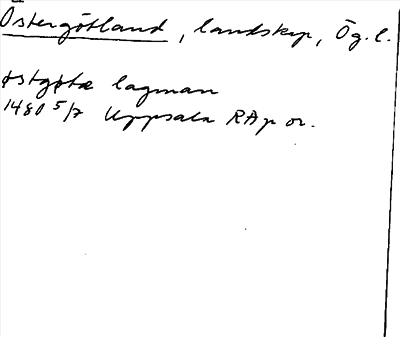 Östergötland, landskap, Ög. l.
østgøtæ lagman
1480 5/7 Uppsala RAp or.